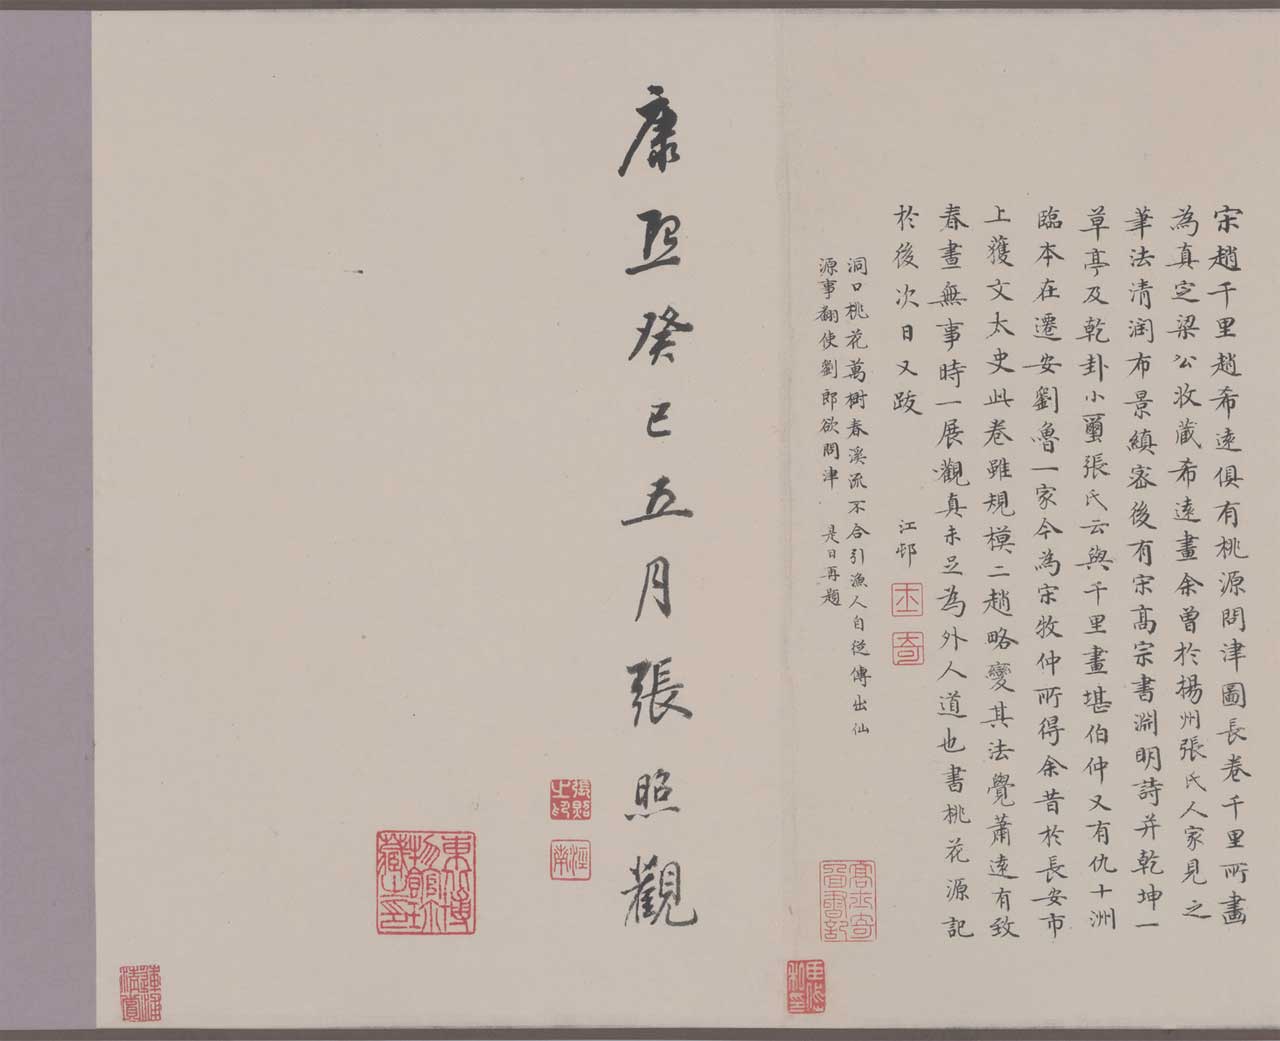 宋趙千里趙希遠俱有桃源問津圖長卷千里所畫
為真定梁公收藏希遠畫余曾於揚州張氏人家見之
筆法清潤布景縝密後有宋高宗書淵明詩并乾坤一
草亭及乾卦小璽張氏云與千里畫堪伯仲又有仇十洲
臨本在遷安劉魯一家今為宋牧仲所得余昔於長安市
上獲文太史此卷雖規模二趙略變其法覺蕭遠有致
春晝無事時一展觀真未足為外人道也書桃花源記
於後次日又跋 江邨
士奇
洞口桃花萬樹春溪流不合引漁人自從傳出仙
源事翻使劉郎欲問津 是日再題
高士奇
康熙癸巳五月張照觀
涇南